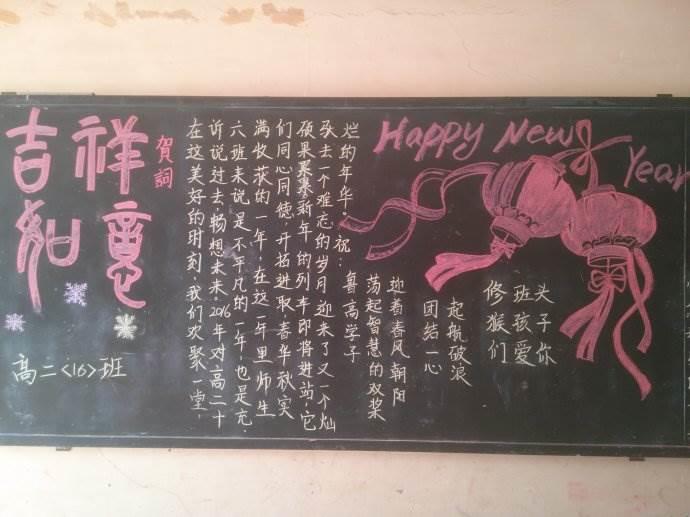 吉祥
如意
賀詞
高二<16>班
在这美好的时刻,我们欢聚一堂,
诉说过去,畅想未来.2016年对高二十
六班来说是不平凡的一年,也是充
满收获的一年,在这一年里师生
们同心同德,开拓进取,春华秋实
硕果累累,新年的列车即将进站,它
驮去一个难忘的岁月,迎来了又一个灿
烂的年华。祝:
鲁高学子
荡起智慧的双桨
迎着春风朝阳
团结一心
起航破浪
Happy New
Year
修班头
猴孩子
们爱你